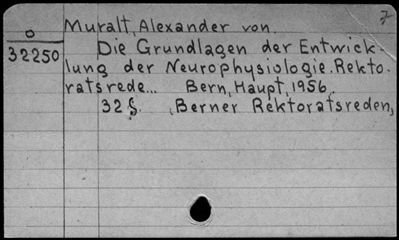 7
Muralt, Alexander von.
O
32250
Die Grundlagen der Entwick-
lung der Neurophysiologie. Rekto-
ratsrede... Bern, Haupt, 1956.
32 S. (Berner Rektoratsreden,